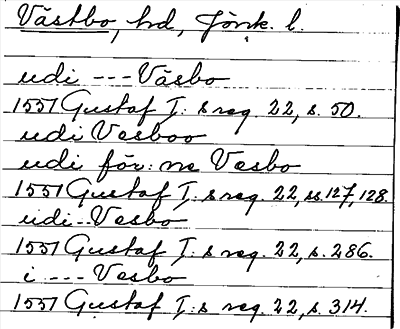 Västbo, hd, Jönk. l.
udi --- Väsbo
1551 Gustaf I:s reg. 22, s. 50.
udi Vesboo
udi för:ne Vesbo
1551 Gustaf I:s reg. 22, ss. 127, 128.
udi -- Vesbo
1551 Gustaf I:s reg. 22, s. 286.
i --- Vesbo
1551 Gustaf I:s reg. 22, s. 314.